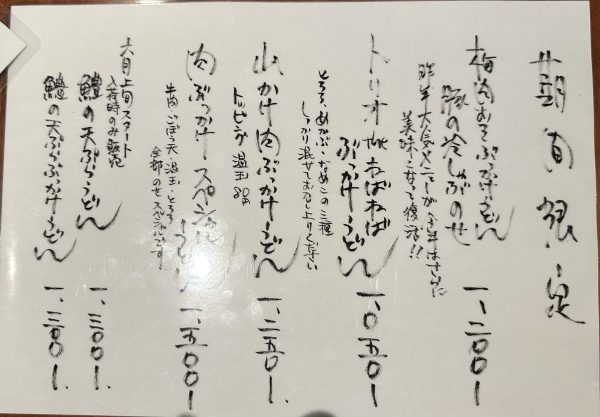 期間限定
梅肉おろしぶっかけうどん
豚の冷しゃぶのせ
一、二〇〇ー
昨年大人気メニューが今年はさらに
美味しくなって復活!!
トリオ the ねばねば
ぶっかけうどん
一、〇五〇ー
とろろ、めかぶ、なめこの三種
しっかり混ぜてお召し上りください
山かけ肉ぶっかけうどん
一、二五〇ー
トッピング 温玉 80円
肉ぶっかけスペシャル
うどん
一、五〇〇ー
牛肉、ごぼう天、温玉、とろろ
全部のせスペシャルです!
六月上旬スタート
入荷時のみ販売
鱧の天ぷらうどん
一、三〇〇ー
鱧の天ぷらぶっかけうどん
一、三〇〇ー